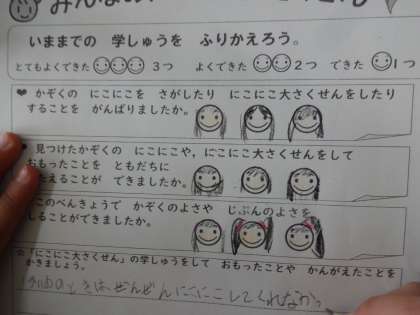 いままでの 学しゅうを ふりかえろう。
とてもよくできた 3つ よくできた 2つ できた 1つ
❤ かぞくの にこにこを さがしたり にこにこ大さくせんをしたり
することを がんばりましたか。
見つけたかぞくの にこにこや，にこにこ大さくせんをして
おもったことを ともだちに
たえることが できましたか。
このべんきょうで かぞくのよさや じぶんのよさを
しることができましたか。
☆「にこにこ大さくせん」の学しゅうをして おもったことや かんがえたことを
かきましょう。
のときは、ぜんぜんにこにこしてくれなかっ